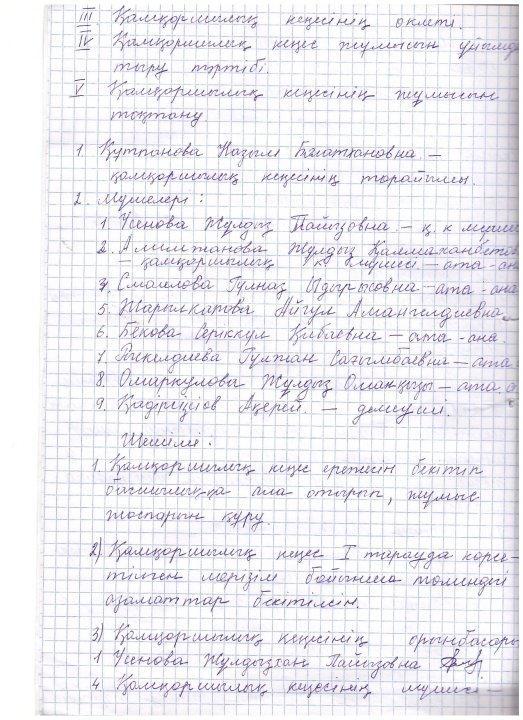 III Қамқоршылық кеңесінің өкілеті.
IV Қамқоршылық кеңес жұмысын ұйымдас
тыру тәртібі.
V Қамқоршылық кеңесінің жұмысын
тоқтату
1. Құттанова Назым Бяхатхановна –
қамқоршылық кеңесінің төрайымы.
2. Мүшелері:
1. Усенова Жулдыз Пайызовна – қ.к мүше
2. Алимжанова Жулдыз Калмаханбетов
– қамқоршылық к мүшесі – ата-ана
4. Смаилова Гулназ Ыдырысовна – ата-ана
5. Жарылкапова Айгул Амангелдиевна
6. Бекова Серіккул Кибаевна – ата-ана.
7. Гулжан Сағымбаевна – ата.
8. Омаркулова Жулдыз Оманқызы – ата.а
9. Ацерей. – демеуші.
Шешімі:
1. Қамқоршылық кеңес ережесін бекітіп
басшылыққа ала отырып, жұмыс
жоспарын құру.
2) Қамқоршылық кеңес I тарауда көрсе-
тілген мерізім бойынша төмендегі
азаматтар бекітілсін.
3) Қамқоршылық кеңесінің орынбасары
1 Усенова Жулдызхан Пайызовна
4 Қамқоршылық кеңесінің мүшесі –